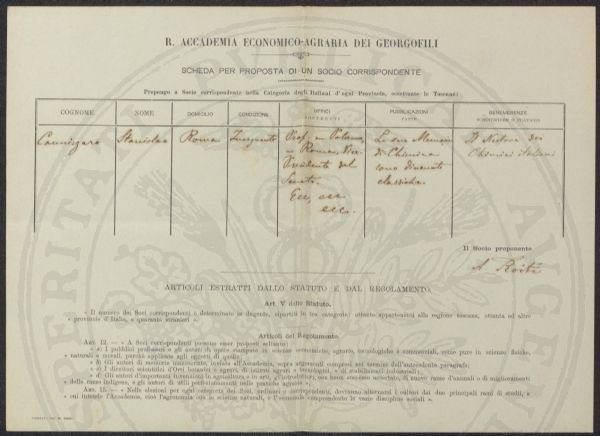 R. ACCADEMIA ECONOMICO-AGRARIA DEI GEORGOFILI
SCHEDA PER PROPOSTA DI UN SOCIO CORRISPONDENTE
Propongo a Socio corrispondente nella Categoria degli Italiani d'ogni Provincia, eccettuate le Toscane:
COGNOME NOME DOMICILIO CONDIZIONE UFFICI SOSTENUTI PUBBLICAZIONI FATTE BENEMERENZE
Cannizzaro Stanislao Roma Insegnante Prof. a Palermo, Le sue Memorie Il Nestore dei
a Roma, Vice di Chimica Chimici italiani
Presidente del sono diventate
Senato. classiche.
Ecc, ecc
ecc.
Il Socio proponente
A Roiti
ARTICOLI ESTRATTI DALLO STATUTO E DAL REGOLAMENTO.
Art. V dello Statuto.
« Il numero dei Soci corrispondenti è determinato in dugento, ripartiti in tre categorie: ottanta appartenenti alla regione toscana, ottanta ad altre
« provincie d'Italia, e quaranta stranieri ».
Articoli del Regolamento.
ART. 12. — « A Soci corrispondenti possono esser proposti soltanto:
« a) I pubblici professori o gli autori di opere stampate in scienze economiche, agrarie, tecnologiche e commerciali, come pure in scienze fisiche,
« naturali e morali, purchè applicate agli oggetti di quelle.
« b) Gli autori di memorie manoscritte, inviate all'Accademia, sopra argomenti compresi nei termini dell'antecedente paragrafo;
« c) I direttori scientifici d'Orti botanici e agrari, di istituti agrari e tecnologici, e di stabilimenti industriali;
« d) Gli autori d'importanti invenzioni in agricoltura o in arti, gl'introduttori, con buon successo accertato, di nuove razze d'animali o di miglioramenti
« delle razze indigene, e gli autori di utili perfezionamenti nelle pratiche agrarie ».
ART. 15. — « Nelle elezioni per ogni categoria dei Soci, ordinari e corrispondenti, dovranno alternarsi i cultori dei due principali rami di studii,
« cui intende l'Accademia, cioè l'agronomia con le scienze naturali, e l'economia comprendente le varie discipline sociali ».